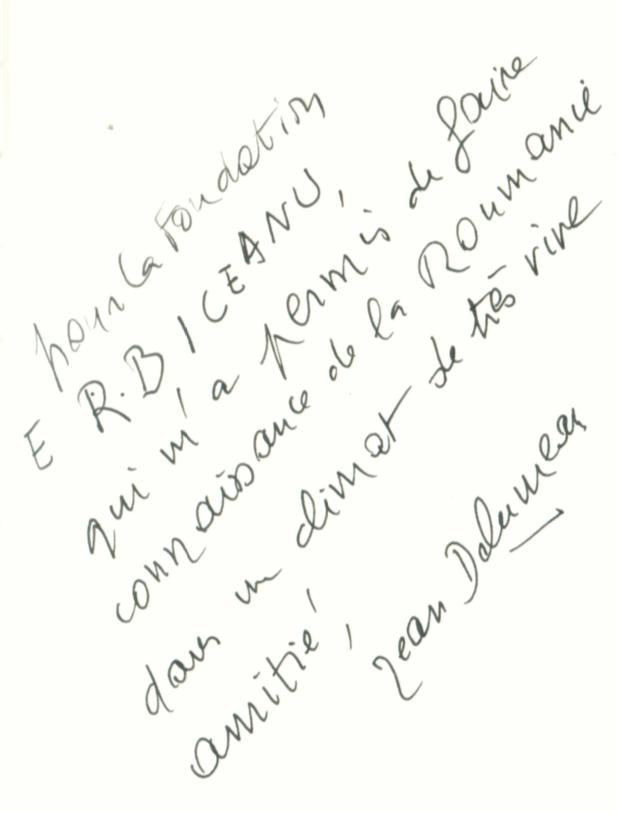 pour la Fondation
E R.BICEANU,
qui m'a permis de faire
connaissance de la Roumanie
dans un climat de très vive
amitié,
Jean Delumeau